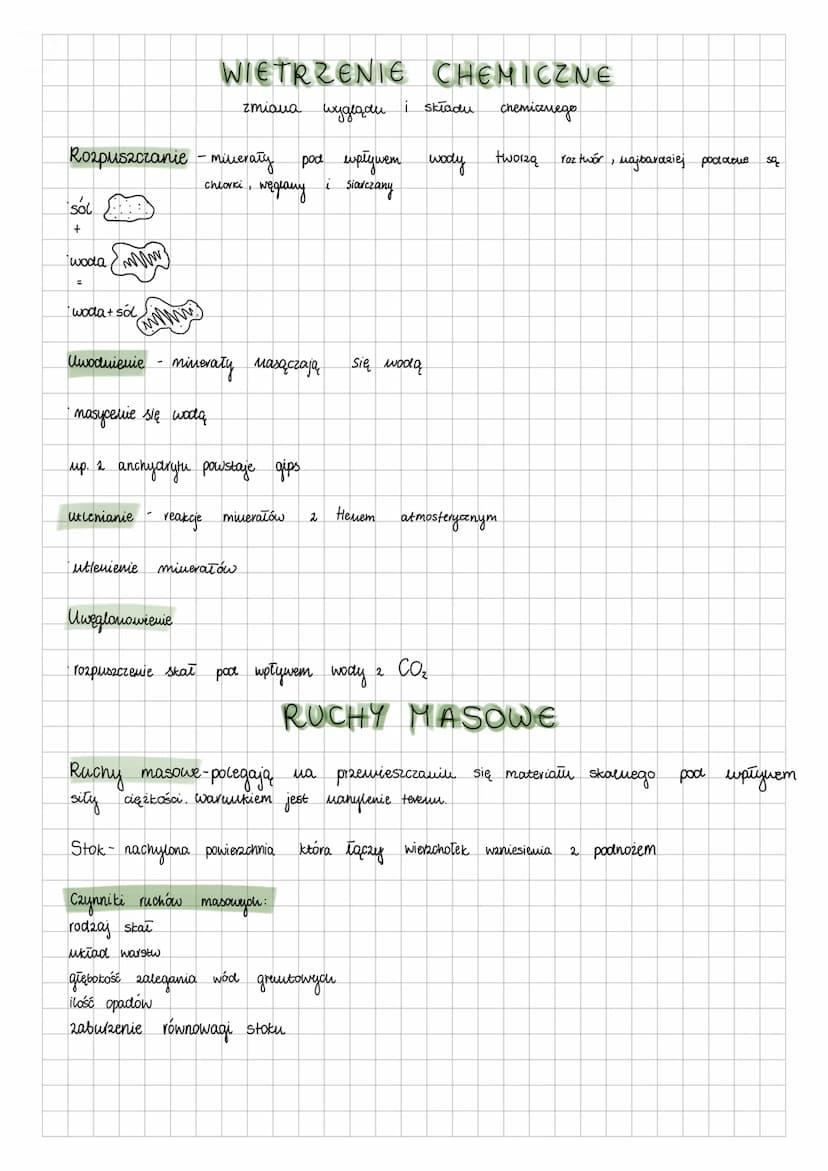 WIETRZENIE CHEMICZNE
zmiana wyglądu i składu chemicznego
Rozpuszczanie - minerały pod wpływem wody tworzą roztwór, najbardziej podatne są
chlorki, węglany i siarczany
· sól
+
· woda
=
· woda + sól
Uwodnienie - minerały nasączają się wodą
· nasycenie się wodą
np. z anchydrytu powstaje gips
utlenianie - reakcje minerałów z tlenem atmosferycznym
· utlenienie minerałów
Uwęglanowienie
· rozpuszczenie skał pod wpływem wody z CO₂
RUCHY MASOWE
Ruchy masowe - polegają na przemieszczaniu się materiału skalnego pod wpływem
siły ciężkości. Warunkiem jest nachylenie terenu.
Stok - nachylona powierzchnia która łączy wierzchołek wzniesienia z podnóżem
Czynniki ruchów masowych:
rodzaj skał
układ warstw
głębokość zalegania wód gruntowych
ilość opadów
zaburzenie równowagi stoku